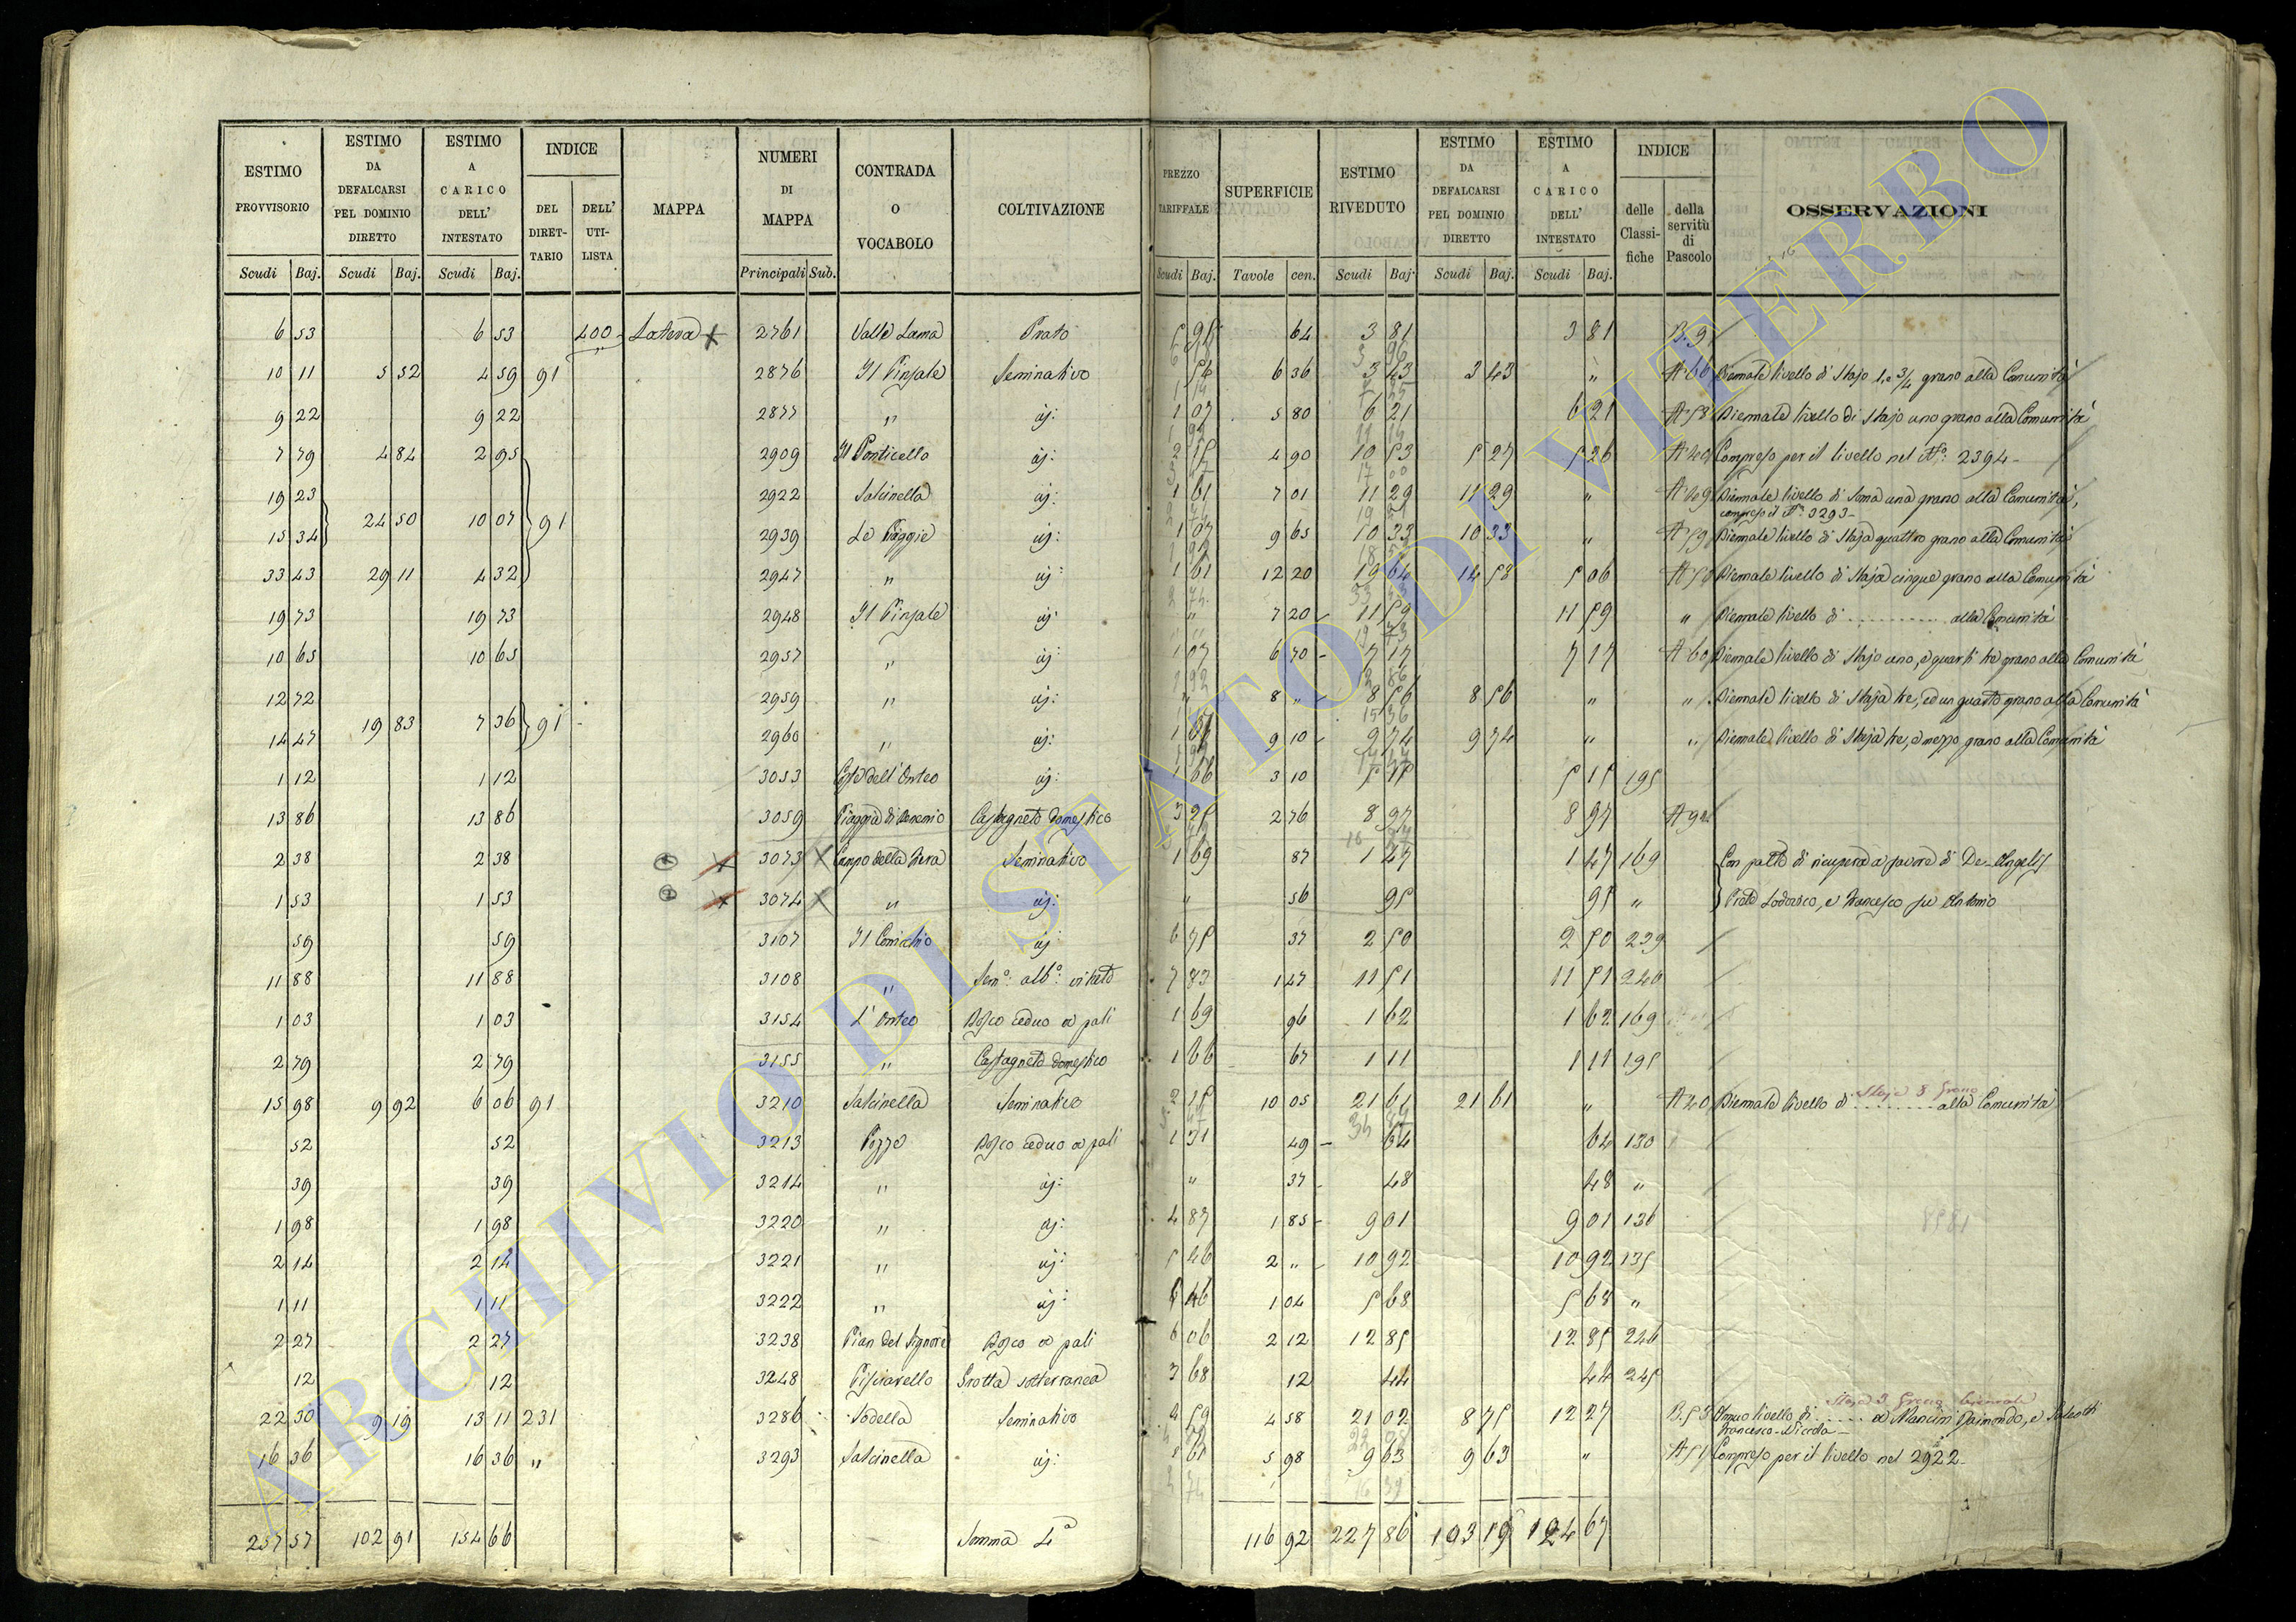 ESTIMO PROVVISORIO | ESTIMO DA DEFALCARSI PEL DOMINIO DIRETTO | ESTIMO A CARICO DELL' INTESTATO | INDICE DEL DIRETTARIO | DELL' UTILISTA | MAPPA | NUMERI DI MAPPA | CONTRADA O VOCABOLO | COLTIVAZIONE | PREZZO TARIFFALE | SUPERFICIE | ESTIMO RIVEDUTO | ESTIMO DA DEFALCARSI PEL DOMINIO DIRETTO | ESTIMO A CARICO DELL' INTESTATO | INDICE delle Classifiche | della servitù di Pascolo | OSSERVAZIONI
Scudi Baj. | Scudi Baj. | Scudi Baj. | Principali Sub. | Scudi Baj. | Tavole cen. | Scudi Baj | Scudi Baj. | Scudi Baj.
6 53 | 6 53 | 400 | Latera | 2761 | Valle Lama | Prato | 5 95 | 64 | 3 81 | 3 81 | B. 9
10 11 | 5 52 | 4 59 | 91 | 2876 | Il Pinzale | Seminativo | 54 | 6 36 | 3 43 | 3 43 | " | A 66 | Biennale livello di Stajo 1. e 3/4 grano alla Comunità
9 22 | 9 22 | 2877 | " | id: | 1 07 | 5 80 | 6 21 | 6 21 | A 58 | Biennale livello di Stajo uno grano alla Comunità
7 79 | 4 84 | 2 95 | 2909 | Il Ponticello | id: | 2 15 | 4 90 | 10 53 | 5 27 | 5 26 | Compreso per il livello nel N°: 2394
19 23 | 2922 | Salcinella | id: | 1 61 | 7 01 | 11 29 | 11 29 | " | Biennale livello di Soma una grano alla Comunità,
24 50 | 10 07 | 91 | compreso il N°. 3293
15 34 | 2939 | Le Piaggie | id: | 1 07 | 9 65 | 10 33 | 10 33 | " | A 59 | Biennale livello di Staja quattro grano alla Comunità
33 43 | 29 11 | 4 32 | 2947 | " | id: | 1 61 | 12 20 | 19 64 | 14 58 | 5 06 | A 50 | Biennale livello di Staja cinque grano alla Comunità
19 73 | 19 73 | 2948 | Il Pinzale | id: | " | 7 20 | 11 59 | 11 59 | " | Biennale livello di ............ alla Comunità
10 65 | 10 65 | 2957 | " | id: | 1 07 | 6 70 | 7 17 | 7 17 | A 60 | Biennale livello di Stajo uno, e quarti tre grano alla Comunità
12 72 | 2959 | " | id: | " | 8 " | 8 56 | 8 56 | " | " | Biennale livello di Staja tre, ed un quarto grano alla Comunità
19 83 | 7 36 | 91
14 47 | 2960 | " | id: | 1 07 | 9 10 | 9 74 | 9 74 | " | " | Biennale livello di Staja tre, e mezzo grano alla Comunità
1 12 | 1 12 | 3053 | Costa dell' Onteo | id: | 1 66 | 3 10 | 5 15 | 5 15 | 195
13 86 | 13 86 | 3059 | Piaggia di | Castagneto domestico | 3 25 | 2 76 | 8 97 | 8 97
2 38 | 2 38 | 3073 | Campo della Fiera | Seminativo | 1 69 | 87 | 1 47 | 1 47 | 169 | Con patto di ricupera a favore di De-Angelis
1 53 | 1 53 | 3074 | " | id: | " | 56 | 95 | 95 | " | Prete Lodovico, e Francesco fu Antonio
59 | 59 | 3107 | Il Cornichio | id: | 6 75 | 37 | 2 50 | 2 50 | 239
11 88 | 11 88 | 3108 | " | Sem°: alb°: vitato | 7 83 | 1 47 | 11 51 | 11 51 | 240
1 03 | 1 03 | 3154 | L' Onteo | Bosco ceduo a pali | 1 69 | 96 | 1 62 | 1 62 | 169
2 79 | 2 79 | 3155 | " | Castagneto domestico | 1 66 | 67 | 1 11 | 1 11 | 195
15 98 | 9 92 | 6 06 | 91 | 3210 | Salcinella | Seminativo | 2 15 | 10 05 | 21 61 | 21 61 | " | A 40 | Biennale livello di Staja 8 Grano alla Comunità
52 | 52 | 3213 | Pozzo | Bosco ceduo a pali | 1 31 | 49 | 64 | 64 | 130
39 | 39 | 3214 | " | id: | " | 37 | 48 | 48 | "
1 98 | 1 98 | 3220 | " | id: | 4 87 | 1 85 | 9 01 | 9 01 | 136
2 14 | 2 14 | 3221 | " | id: | 5 46 | 2 " | 10 92 | 10 92 | 135
1 11 | 1 11 | 3222 | " | id: | 5 46 | 1 04 | 5 68 | 5 68 | "
2 27 | 2 27 | 3238 | Pian del Signore | Bosco a pali | 6 06 | 2 12 | 12 85 | 12 85 | 246
12 | 12 | 3248 | Pisciarello | Grotta sotterranea | 3 68 | 12 | 44 | 44 | 245
22 30 | 9 19 | 13 11 | 231 | 3286 | Sodella | Seminativo | 4 59 | 4 58 | 21 02 | 8 75 | 12 27 | B. 53 | Annuo livello di Staja 3 Grano biennali a Mancini Raimondo, e
Francesco-Nicola
16 36 | 16 36 | " | 3293 | Salcinella | id: | 1 61 | 5 98 | 9 63 | 9 63 | " | A 51 | Compreso per il livello nel 2922
257 57 | 102 91 | 154 66 | Somma 4ª | 116 92 | 227 86 | 103 19 | 124 67
ARCHIVIO DI STATO DI VITERBO